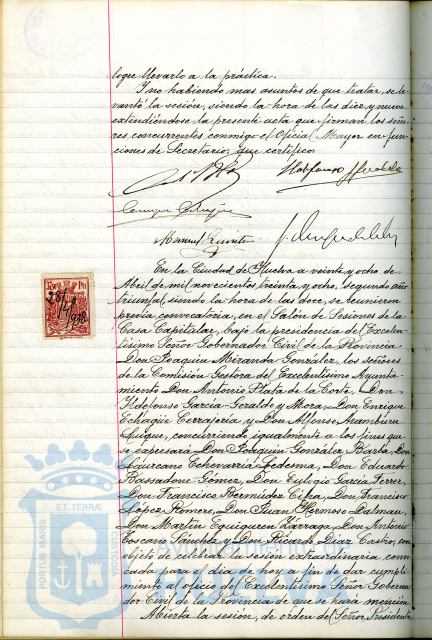 logre llevarlo a la práctica.
Y no habiendo mas asuntos de que tratar, se le-
vantó la sesión, siendo la hora de las diez y nueve
extendiéndose la presente acta que firman los seño-
res concurrentes conmigo el Oficial Mayor en fun-
ciones de Secretario, que certifico.
Ildefonso
Enrique Echagüe
Manuel
28/4/1938
En la Ciudad de Huelva a veinte y ocho de
Abril de mil novecientos treinta y ocho, segundo año
triunfal, siendo la hora de las doce, se reunieron
previa convocatoria, en el Salón de Sesiones de la
Casa Capitular, bajo la presidencia del Excelen-
tísimo Señor Gobernador Civil de la Provincia
Don Joaquín Miranda González, los señores
de la Comisión Gestora del Excelentísimo Ayunta-
miento Don Antonio Plata de la Corte, Don
Ildefonso García-Geraldo y Mora, Don Enrique
Echagüe Cerrajería y Don Alfonso Aramburu
Luque, concurriendo igualmente a los fines que
se expresará Don Joaquín González Barba, Don
Laureano Echevarría Ledesma, Don Eduardo
Bassadone Gómez, Don Eulogio García Ferrer,
Don Francisco Bermúdez Don Francisco
López Romero, Don Juan Hermoso Dalmau,
Don Martín Eguiguren Don Antonio
Toscano Sánchez y Don Ricardo Díaz Castro, con
objeto de celebrar la sesión extraordinaria convo-
cada para el día de hoy a fin de dar cumpli-
miento al oficio del Excelentísimo Señor Goberna-
dor Civil de la Provincia de que se hará mención.
Abierta la sesión, de orden del Señor Presidente
PORTUS MARIS ET TERRÆ CUSTODIA